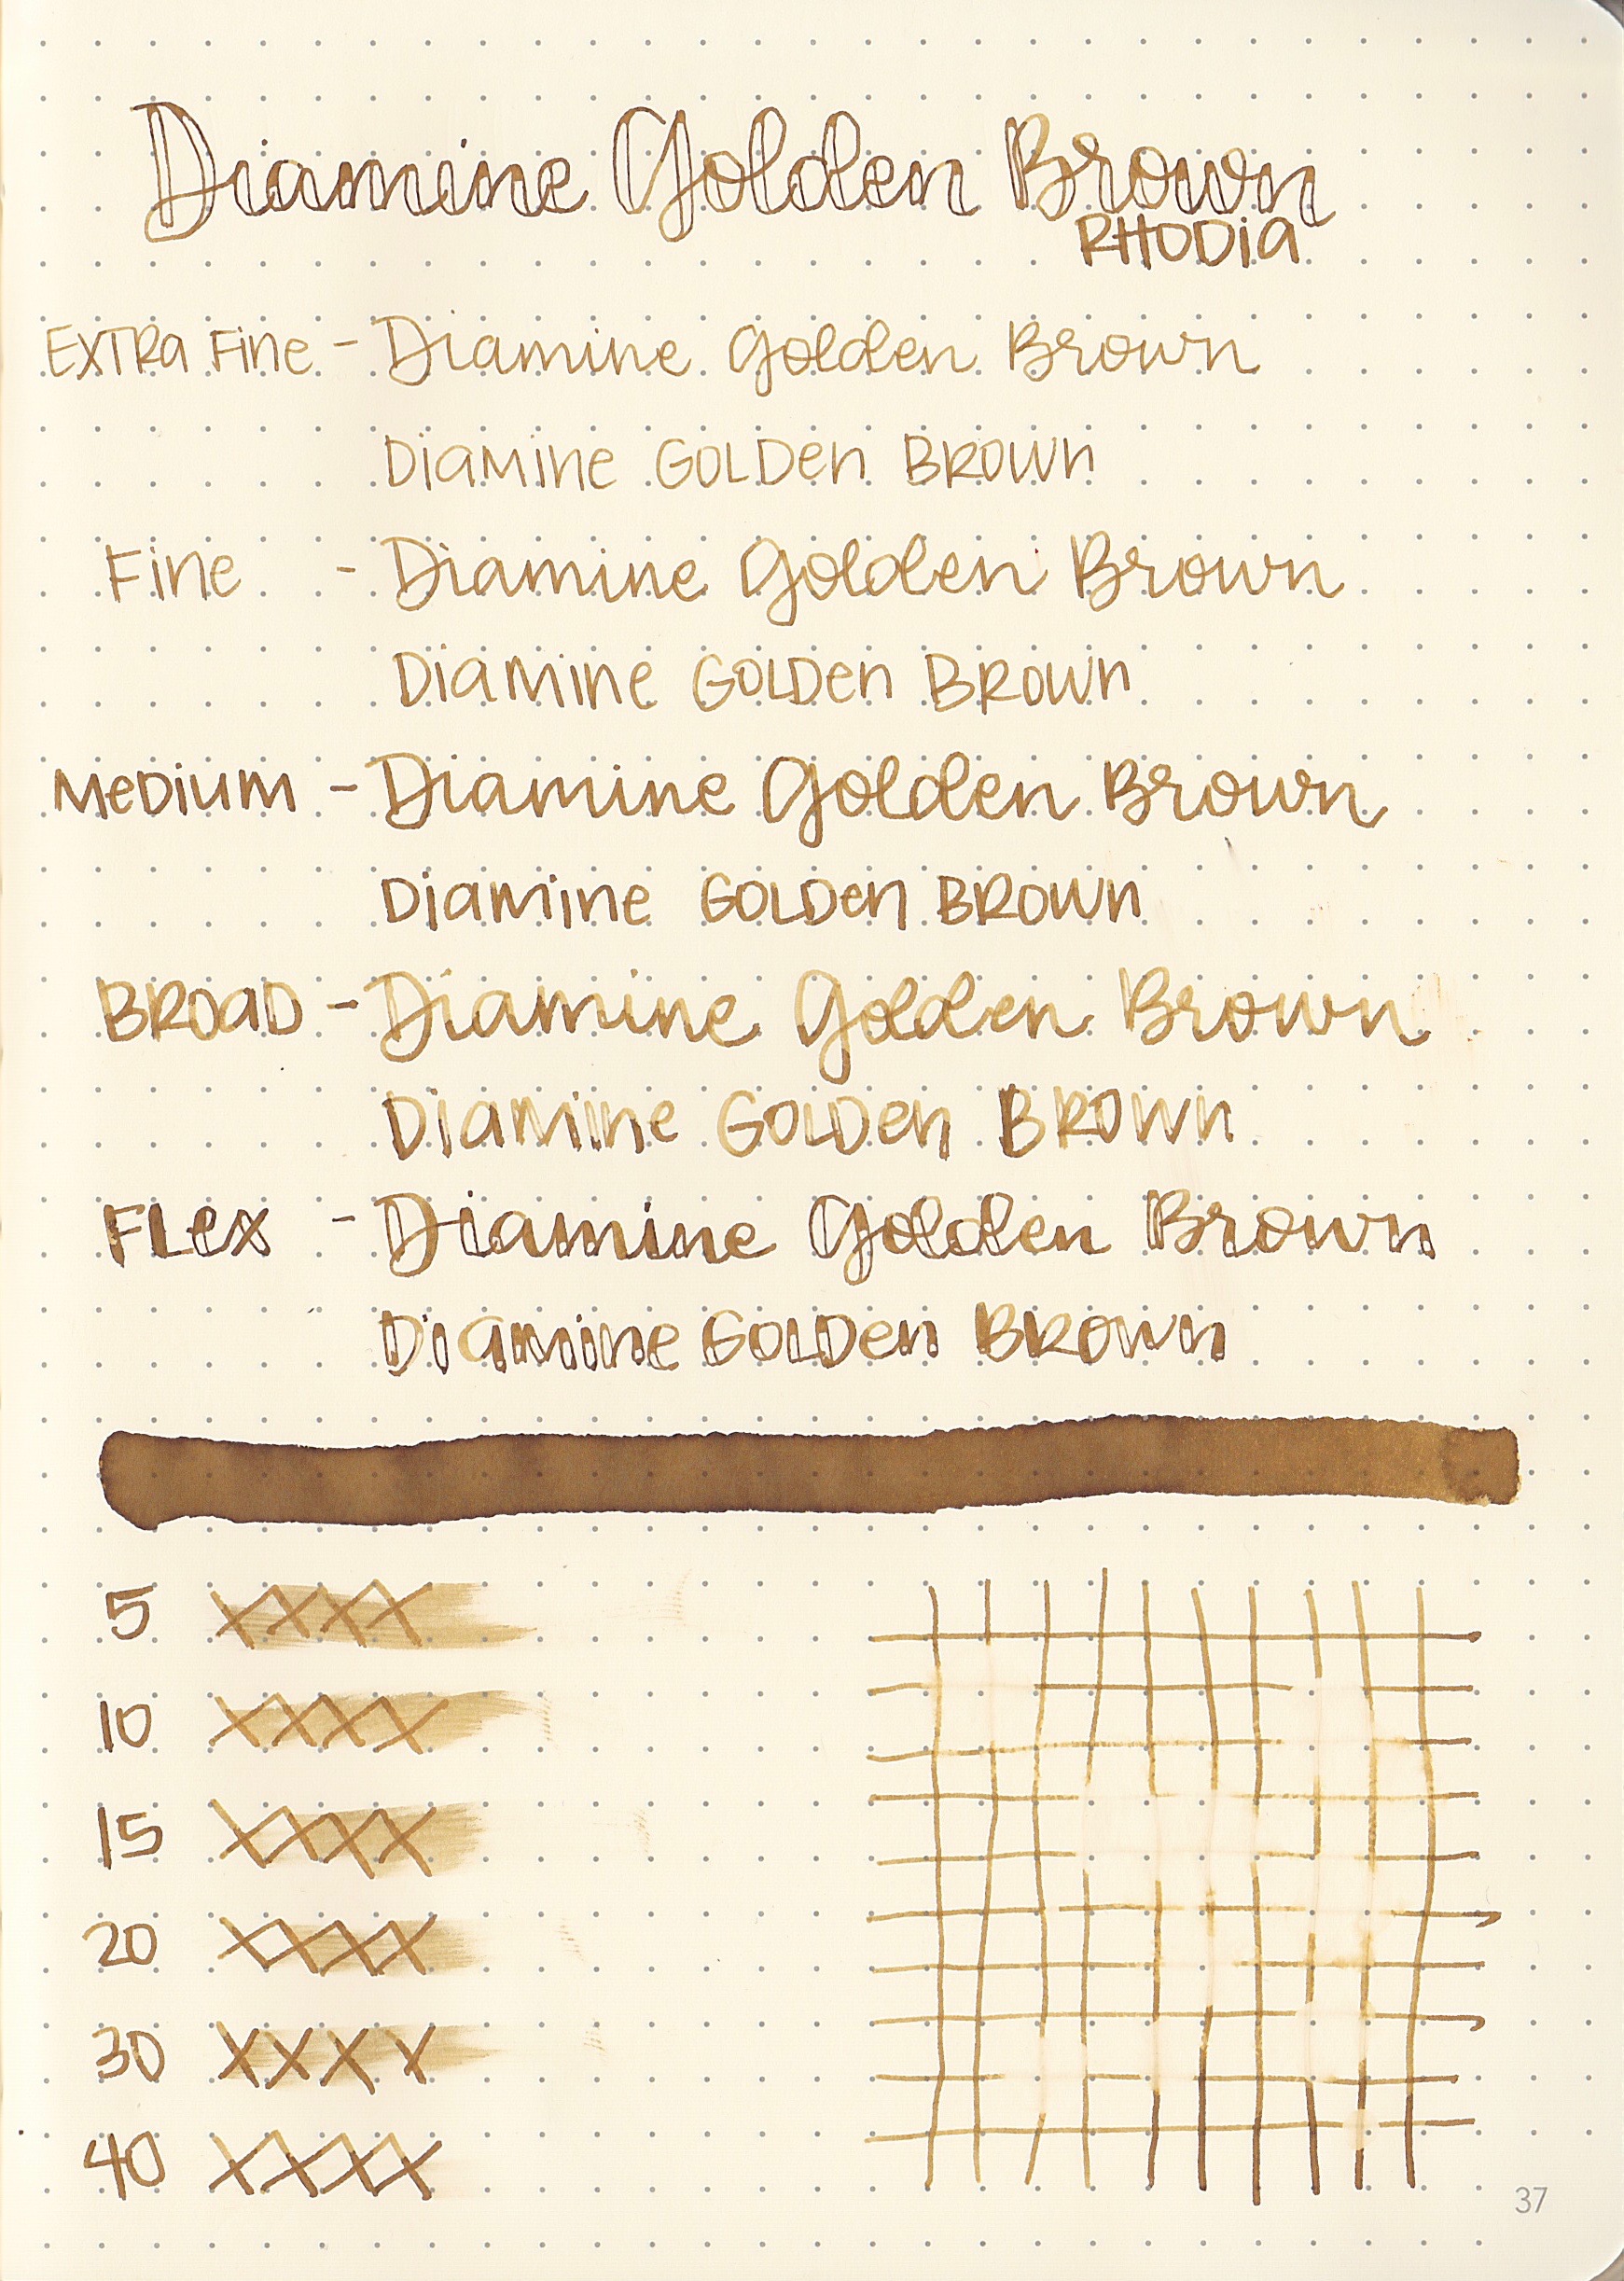 Diamine Golden Brown
RHODIA
EXTRA FINE - Diamine Golden Brown
DIAMINE GOLDEN BROWN
FINE - Diamine Golden Brown
DIAMINE GOLDEN BROWN
MEDIUM - Diamine Golden Brown
DIAMINE GOLDEN BROWN
BROAD - Diamine Golden Brown
DIAMINE GOLDEN BROWN
FLEX - Diamine Golden Brown
DIAMINE GOLDEN BROWN
5 XXXX
10 XXXX
15 XXXX
20 XXXX
30 XXXX
40 XXXX
37